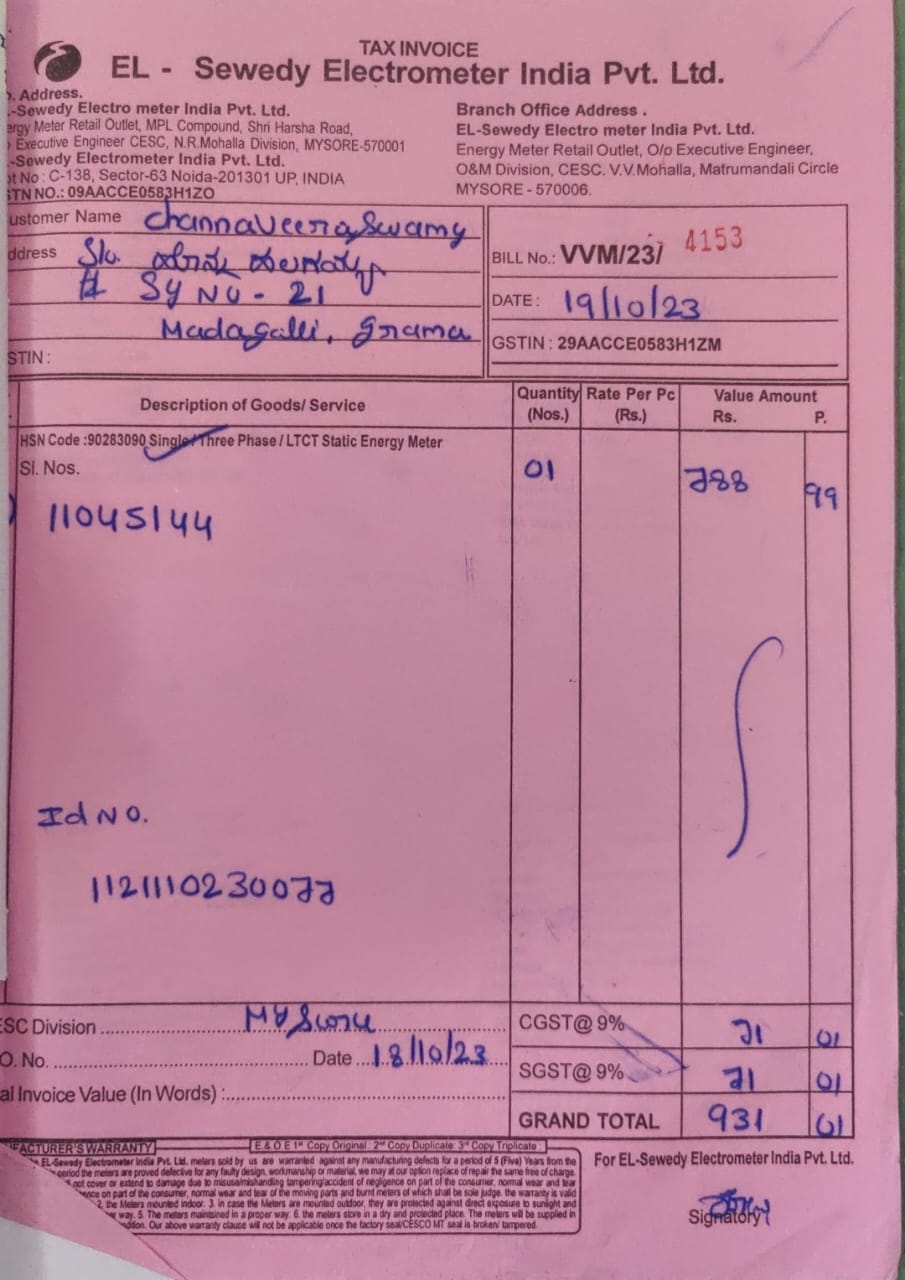 TAX INVOICE
EL - Sewedy Electrometer India Pvt. Ltd.
. Address.
-Sewedy Electro meter India Pvt. Ltd.
ergy Meter Retail Outlet, MPL Compound, Shri Harsha Road,
Executive Engineer CESC, N.R.Mohalla Division, MYSORE-570001
-Sewedy Electrometer India Pvt. Ltd.
ot No : C-138, Sector-63 Noida-201301 UP, INDIA
STN NO.: 09AACCE0583H1ZO
Branch Office Address .
EL-Sewedy Electro meter India Pvt. Ltd.
Energy Meter Retail Outlet, O/o Executive Engineer,
O&M Division, CESC. V.V.Mohalla, Matrumandali Circle
MYSORE - 570006.
ustomer Name ChannaVeeraSwamy
ddress S/o.
# SY NO - 21
Madagalli, Grama
STIN :
BILL No.: VVM/23/ 4153
DATE : 19/10/23
GSTIN : 29AACCE0583H1ZM
Description of Goods/ Service
Quantity (Nos.)
Rate Per Pc (Rs.)
Value Amount
Rs. P.
HSN Code :90283090 Single/Three Phase / LTCT Static Energy Meter
Sl. Nos.
01 788 99
11045144
Id NO.
1121110230077
ESC Division Mysore
O. No. Date 18/10/23
al Invoice Value (In Words) :
CGST@ 9% 71 01
SGST@ 9% 71 01
GRAND TOTAL 931 01
FACTURER'S WARRANTY
E & O E 1st Copy Original : 2nd Copy Duplicate: 3rd Copy Triplicate :
EL-Sewedy Electrometer India Pvt. Ltd. meters sold by us are warranted against any manufacturing defects for a period of 5 (Five) Years from the
period the meters are proved defective for any faulty design, workmanship or material, we may at our option replace of repair the same free of charge.
not cover or extend to damage due to misuse/mishandling tampering/accident of negligence on part of the consumer, normal wear and tear
ence on part of the consumer, normal wear and tear of the moving parts and burnt meters of which shall be sole judge. the warranty is valid
2. the Meters mounted indoor. 3. in case the Meters are mounted outdoor, they are protected against direct exposure to sunlight and
way. 5. The meters maintained in a proper way. 6. the meters store in a dry and protected place. The meters will be supplied in
dition. Our above warranty clause will not be applicable once the factory seal/CESCO MT seal is broken/ tampered.
For EL-Sewedy Electrometer India Pvt. Ltd.
Signatory